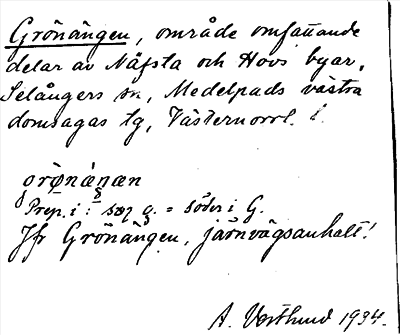 Grönängen, område omfattande
delar av Näfsta och Hovs byar,
Selångers sn, Medelpads västra
domsagas tg, Västernorrl. l.
grø̀nǽŋæn
Prep. i : sœɳ g. = söder i G.
Jfr Grönängen, järnvägsanhalt!
A. Vestlund 1934.